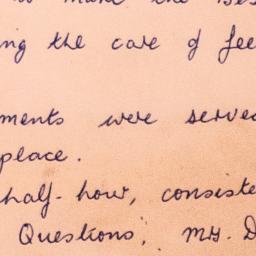 ing the care of fee
ments were served
place.
half-hour, consiste
Questions, Mrs. D